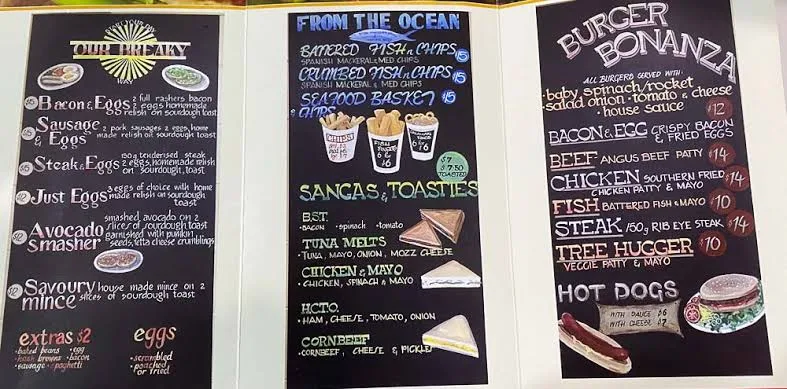 START YOUR DAY
OUR BREAKY
WAY
Bacon & Eggs 2 full rashers bacon
2 eggs homemade
relish on sourdough toast
Sausage & Eggs 2 pork sausages 2 eggs, home
made relish on sourdough toast
Steak & Eggs 150g tenderised steak
2 eggs, homemade relish
on sourdough, toast
Just Eggs 3 eggs of choice with home
made relish on sourdough
toast
Avocado smasher smashed avocado on 2
slices of sourdough toast
garnished with punkin
seeds, fetta cheese crumblings
Savoury mince house made mince on 2
slices of sourdough toast
extras $2
•baked beans •egg
•hash browns •bacon
•sausage •spaghetti
eggs
•scrambled
•poached
or fried
FROM THE OCEAN
BATTERED FISH n CHIPS $15
SPANISH MACKERAL & MED CHIPS
CRUMBED FISH n CHIPS $15
SPANISH MACKERAL & MED CHIPS
SEAFOOD BASKET $15
& CHIPS
CHIPS
$7
$7.50
TOASTED
SANGAS & TOASTIES
B.S.T.
•BACON •spinach •tomato
TUNA MELTS
•TUNA, MAYO, ONION, MOZZ CHEESE
CHICKEN & MAYO
•CHICKEN, SPINACH & MAYO
H.C.T.O.
•HAM, CHEESE, TOMATO, ONION
CORNBEEF
•CORNBEEF, CHEESE & PICKLE
BURGER
BONANZA
ALL BURGERS SERVED WITH
•baby spinach/rocket
•salad onion •tomato & cheese
•house sauce
$12
BACON & EGG CRISPY BACON
& FRIED EGGS
BEEF ANGUS BEEF PATTY $14
CHICKEN SOUTHERN FRIED $14
CHICKEN PATTY & MAYO
FISH BATTERED FISH & MAYO $10
STEAK 150g RIB EYE STEAK $14
TREE HUGGER $10
VEGGIE PATTY & MAYO
HOT DOGS
WITH SAUCE $6
WITH CHEESE $7